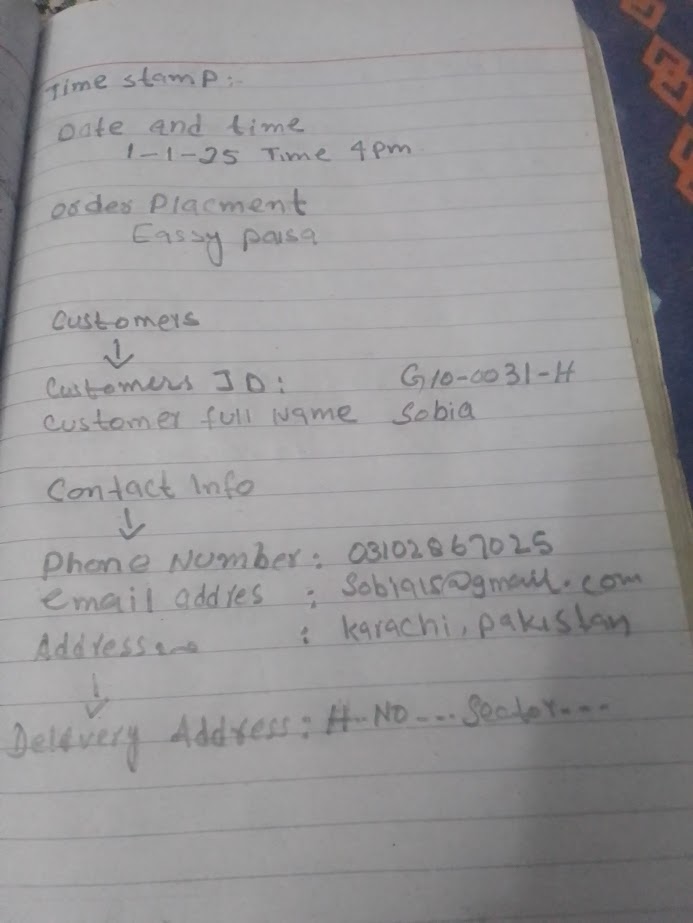 Time stamp:-
Date and time
1-1-25 Time 4pm
order Placment
Eassy paisa
Customers
↓
Customers ID: G10-0031-H
Customer full Name Sobia
Contact Info
↓
Phone Number: 03102867025
email addres : @gmail.com
Address : karachi, pakistan
↓
Delivery Address: H-No --- Sector---